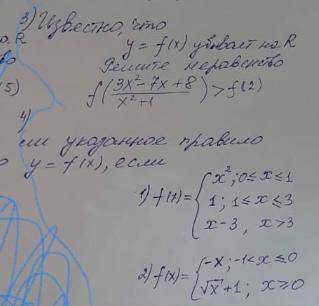 3) Известно, что
на R y = f(x) убывает на R
Решите неравенство
15) f((3x²-7x+8)/(x²+1)) > f(2)
4)
указанное правило
y = f(x), если
1) f(x) = { x²; 0 ≤ x ≤ 1
1; 1 ≤ x ≤ 3
x-3, x > 3
2) f(x) = { -x; -1 < x ≤ 0
√x + 1; x ≥ 0